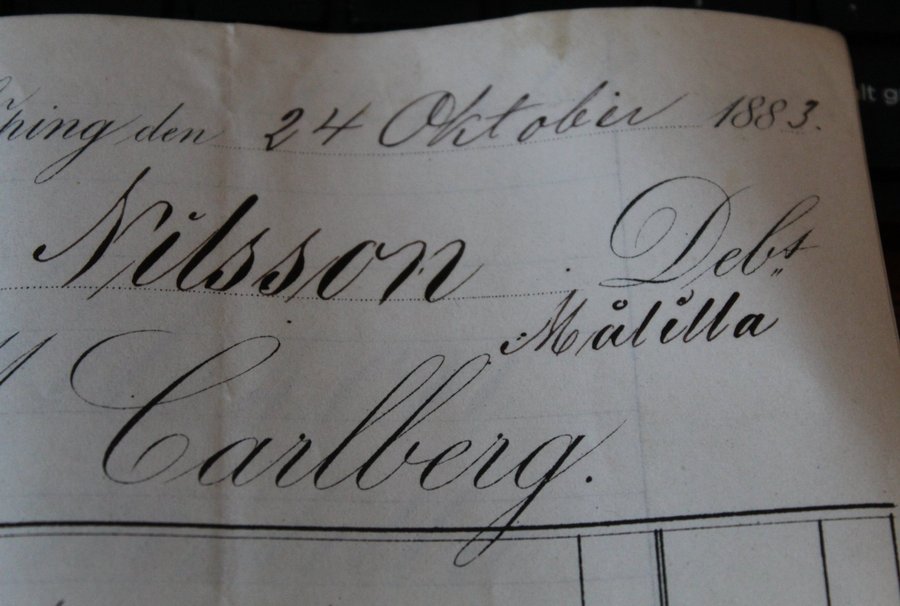 öping den 24 Oktober 1883.
Nilsson Debt
Målilla
Carlberg.
lt g